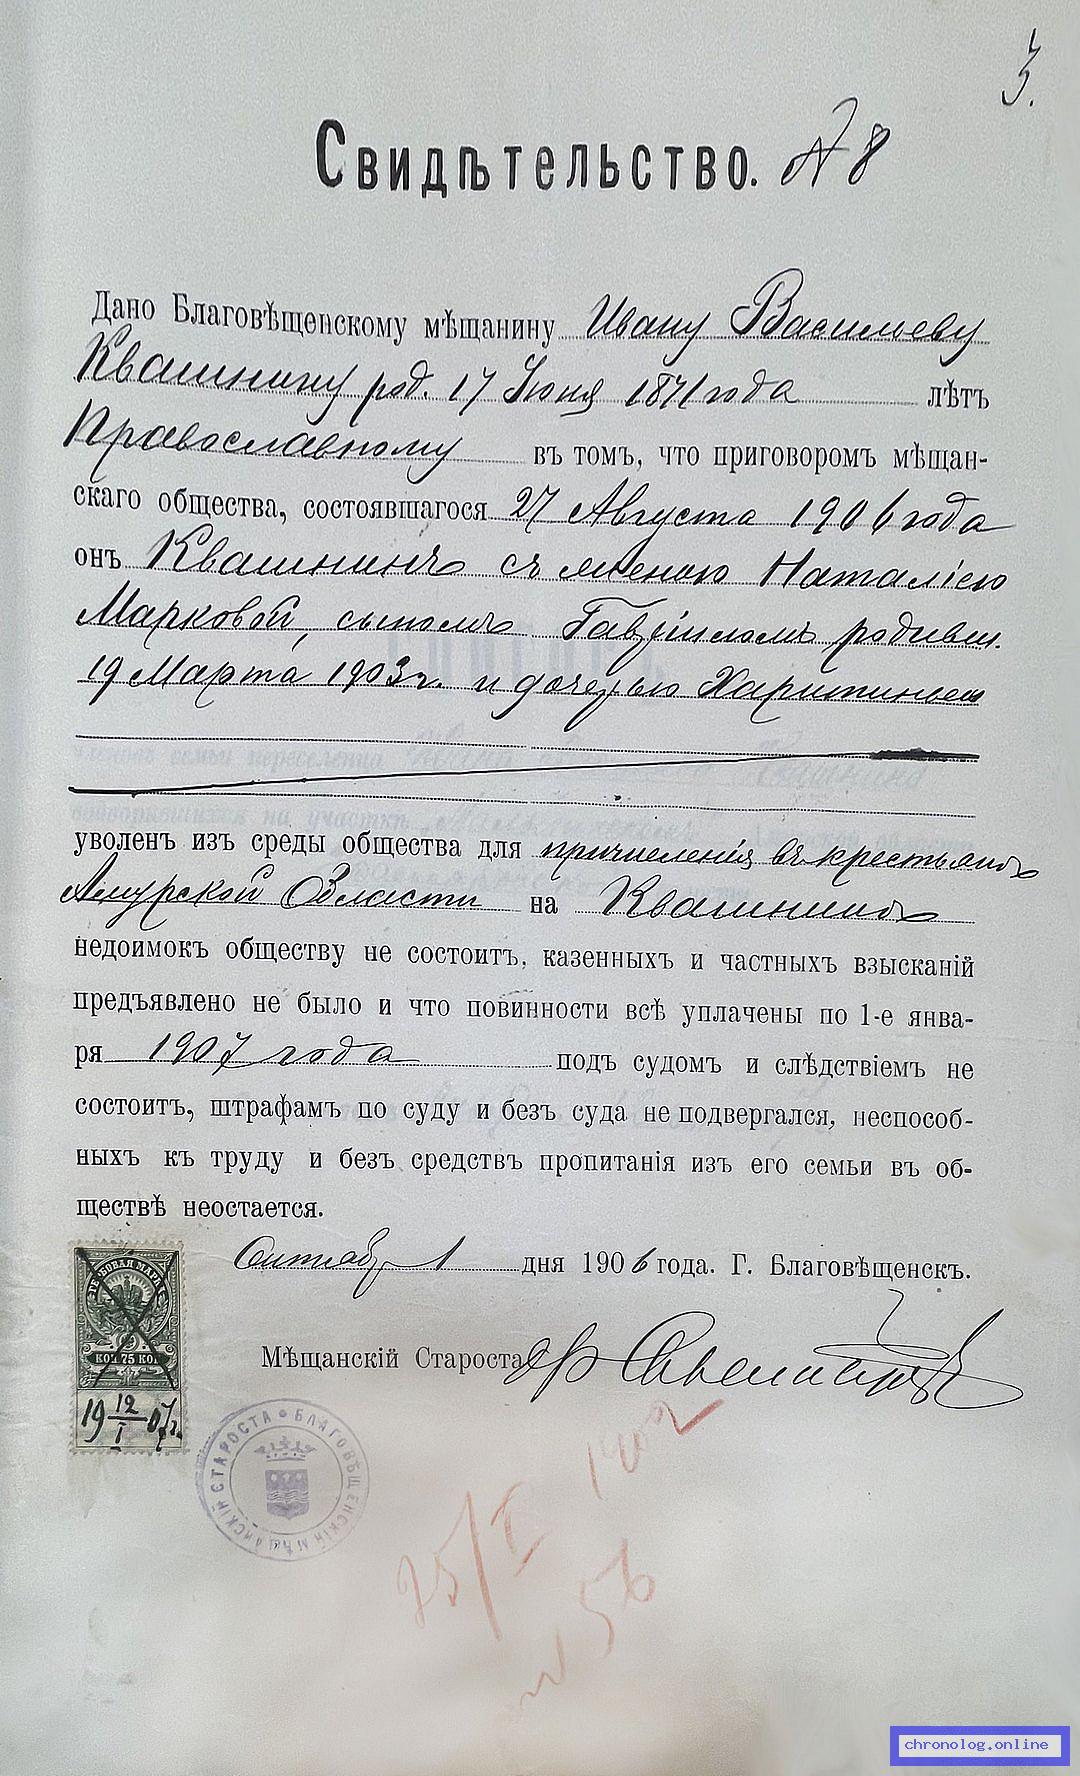 3.
Свидѣтельство. № 8
Дано Благовѣщенскому мѣщанину Ивану Васильеву
Квашнину род. 17 Іюня 1871 года лѣтъ
Православному въ томъ, что приговоромъ мѣщан-
скаго общества, состоявшагося 27 Августа 1906 года
онъ Квашнинъ съ женою Наталіею
Марковой, сыномъ Гавріиломъ родивш.
19 Марта 1903 г. и дочерью Харитиньей
уволенъ изъ среды общества для причисленія въ крестьяне
Амурской Области на Квашнинѣ
недоимокъ обществу не состоитъ, казенныхъ и частныхъ взысканій
предъявлено не было и что повинности всѣ уплачены по 1-е янва-
ря 1907 года подъ судомъ и слѣдствіемъ не
состоитъ, штрафамъ по суду и безъ суда не подвергался, неспособ-
ныхъ къ труду и безъ средствъ пропитанія изъ его семьи въ об-
ществѣ неостается.
Сентябр 1 дня 1906 года. Г. Благовѣщенскъ.
Мѣщанскій Староста
ГЕРБОВАЯ МАРКА
КОП 75 КОП
19 12/I 07 г.
БЛАГОВѢЩЕНСКІЙ МѢЩАНСКІЙ СТАРОСТА
25/I 1907
№ 56
chronolog.online